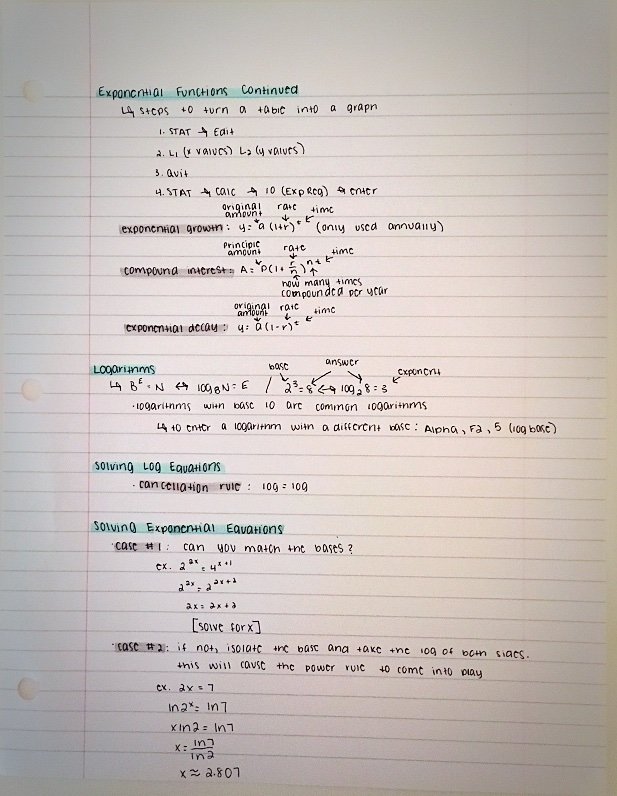 Exponential Functions Continued
↳ steps to turn a table into a graph
1. STAT → Edit
2. L₁ (x values) L₂ (y values)
3. Quit
4. STAT → Calc → 10 (ExpReg) → enter
original amount rate time
exponential growth: y = a(1+r)ᵗ (only used annually)
Principle amount rate time
compound interest: A = P(1 + r/n)ⁿᵗ
how many times
compounded per year
original amount rate time
exponential decay: y = a(1-r)ᵗ
Logarithms
base answer exponent
↳ Bᴱ = N ↔ log_B N = E / 2³ = 8 ↔ log₂8 = 3
· logarithms with base 10 are common logarithms
↳ to enter a logarithm with a different base: Alpha, F2, 5 (log base)
Solving Log Equations
· cancellation rule: log = log
Solving Exponential Equations
· case #1: can you match the bases?
ex. 2²ˣ = 4ˣ⁺¹
2²ˣ = 2²ˣ⁺²
2x = 2x + 2
[solve for x]
· case #2: if not, isolate the base and take the log of both sides.
this will cause the power rule to come into play
ex. 2x = 7
ln2ˣ = ln7
xln2 = ln7
x = ln7/ln2
x ≈ 2.807